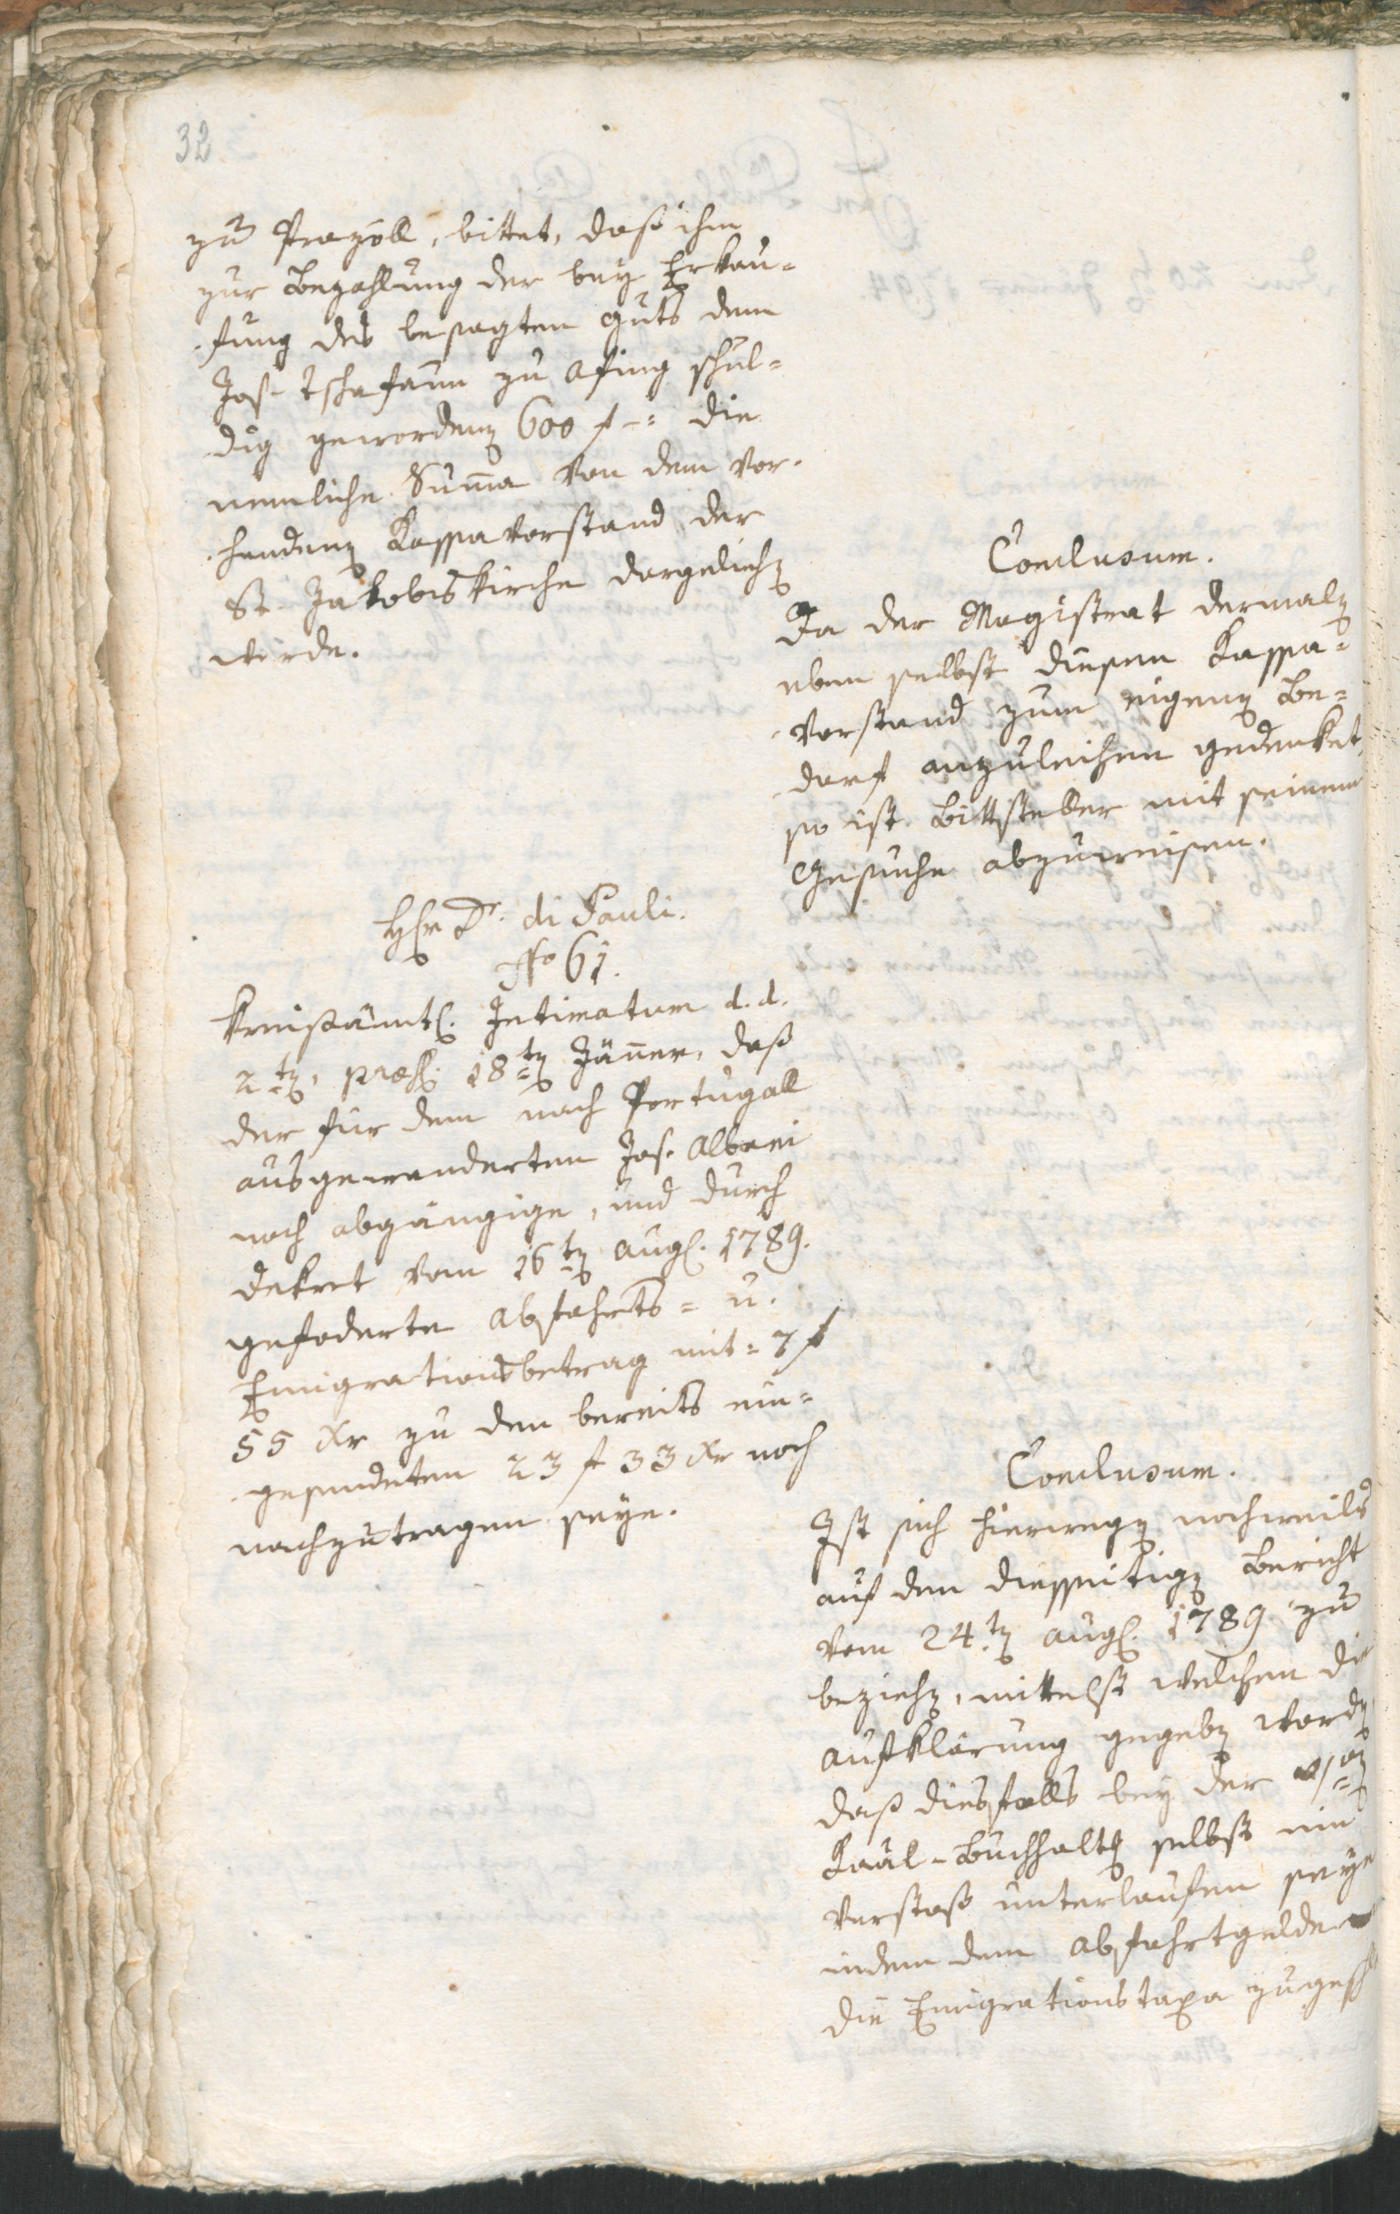 32
zu Prazöll, bittet, daß ihm
zur Bezahlung der bey Erkau-
fung des besagten Guts dem
Jos. Tschafaun zu Afing schul-
dig gewordenen 600 f -: die
nemliche Summa von dem vor-
handenen Kassavorstand der
St. Jakobskirche dargeliehen
würde.
Conclusum.
Da der Magistrat dermalen
eben selbst diesen Kassa-
vorstand zum eigenen Be-
darf anzuleihen gedenket,
so ist Bittsteller mit seinem
Gesuche abzuweisen.
Hr Dr. di Pauli.
No 61.
Kreisämtl. Intimatum d. d.
2ten, præs. 18ten Jänner, daß
der für dem nach Portugall
ausgewanderten Jos. Albani
noch abgängige, und durch
Dekret vom 16ten Aug. 1789.
gefoderte Abfahrts= u.
Emigrationsbetrag mit = 7 f
55 Xr zu den bereits ein-
gesendeten 23 f 33 Xr noch
nachzutragen seye.
Conclusum.
Ist sich hierwegen nochmals
auf den diesseitigen Bericht
vom 24ten Aug. 1789 zu
beziehen, mittelst welchem die
Aufklärung gegeben worden
daß diesfalls bey der
Kaal-Buchhaltg selbst ein
Verstoß unterlaufen seye
indem dem Abfahrtgelde
die Emigrationstaxa zugesch